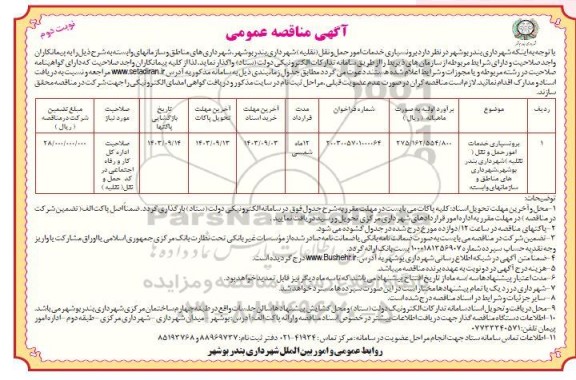 آگهی مناقصه عمومی
نوبت دوم
با توجه به اینکه شهرداری بندر بوشهر در نظر دارد برونسپاری خدمات امور حمل و نقل (نقلیه) شهرداری بندر بوشهر، شهرداری های مناطق و سازمانهای وابسته به شرح ذیل را به پیمانکاران
واجد صلاحیت و دارای شرایط مربوطه از سازمان های ذیربط را از طریق سامانه تدارکات الکترونیکی دولت (ستاد) واگذار نماید. لذا از کلیه پیمانکاران واجد صلاحیت که دارای گواهینامه
صلاحیت در رشته مربوطه و یا مجوزات و شرایط اعلام شده هستند دعوت می گردد مطابق جدول زمانبندی ذیل به سامانه مذکور به آدرس www.setadiran.ir مراجعه و نسبت به دریافت
اسناد و مدارک اقدام نمایند. لازم است مناقصه گران در صورت عدم عضویت قبلی، مراحل ثبت نام در سایت مذکور و دریافت گواهی امضای الکترونیکی را جهت شرکت در مناقصه محقق
سازند.
ردیف موضوع برآورد اولیه به صورت ماهیانه (ریال) شماره فراخوان مدت قرارداد آخرین مهلت خرید اسناد آخرین مهلت تحویل پاکات تاریخ بازگشایی پاکتها صلاحیت مورد نیاز مبلغ تضمین شرکت در مناقصه (ریال)
۱ برونسپاری خدمات امور حمل و نقل (نقلیه) شهرداری بندر بوشهر، شهرداری های مناطق و سازمانهای وابسته ۲۷۵/۱۶۲/۵۵۴/۸۰۰ ۲۰۰۳۰۰۵۷۰۱۰۰۰۰۶۴ ۱۲ماه شمسی ۱۴۰۳/۰۹/۰۳ ۱۴۰۳/۰۹/۱۳ ۱۴۰۳/۰۹/۱۴ صلاحیت اداره کل کار و رفاه اجتماعی در کد حمل و نقل (نقلیه) ۲۸/۰۰۰/۰۰۰/۰۰۰
توضیحات:
۱- محل و آخرین مهلت تحویل اسناد: کلیه پاکات می بایست در مهلت مقرر به شرح جدول فوق در سامانه الکترونیکی دولت (ستاد) بارگذاری گردد. ضمناً اصل پاکت الف (تضمین شرکت
در مناقصه) در مهلت مقرر به اداره امور قراردادهای شهرداری مرکزی تحویل و رسید دریافت نمایند.
۲- پاکتهای مناقصه در ساعت ۱۲/دوازده مورخ درج شده در جدول گشوده می شود.
۳- تضمین شرکت در مناقصه می بایست به صورت ضمانت نامه بانکی یا ضمانت نامه صادر شده از مؤسسات غیر بانکی تحت نظارت بانک مرکزی جمهوری اسلامی یا اوراق مشارکت یا واریز
وجه نقد به حساب سپرده شماره
۴- ضمناً متن آگهی در شبکه اطلاع رسانی شهرداری بوشهر به آدرس www.Bushehr.ir درج گردیده است.
۵- هزینه درج آگهی در دو نوبت به عهده برنده مناقصه میباشد.
۶- مدت اعتبار پیشنهادها سه ماه از تاریخ افتتاح پیشنهاد می باشد که تا سه ماه دیگر نیز قابل تمدید خواهد بود.
۷- شهرداری در رد یک یا تمام پیشنهادها مختار است در این صورت سپرده ها مسترد خواهد شد.
۸- سایر جزئیات و شرایط در اسناد مناقصه درج شده است.
۹- محل دریافت و تحویل اسناد سامانه تدارکات الکترونیک دولت (ستاد) و محل گشایش پیشنهادها سالن جلسات واقع در طبقه چهارم ساختمان مرکزی شهرداری بندر بوشهر می باشد.
۱۰- اطلاعات دستگاه مناقصه گذار جهت دریافت اطلاعات بیشتر در خصوص اسناد مناقصه و ارائه پاکت الف: آدرس: بوشهر - میدان شهرداری - شهرداری مرکزی - طبقه دوم - اداره امور
پیمان تلفن: ۰۷۷۳۳۳۴۰۵۷۱
۱۱- اطلاعات تماس سامانه ستاد جهت انجام مراحل عضویت در سامانه: مرکز تماس: ۴۱۹۳۴-۰۲۱ دفتر ثبت نام: ۸۸۹۶۹۷۳۷ و ۸۵۱۹۳۷۶۸
روابط عمومی و امور بین الملل شهرداری بندر بوشهر